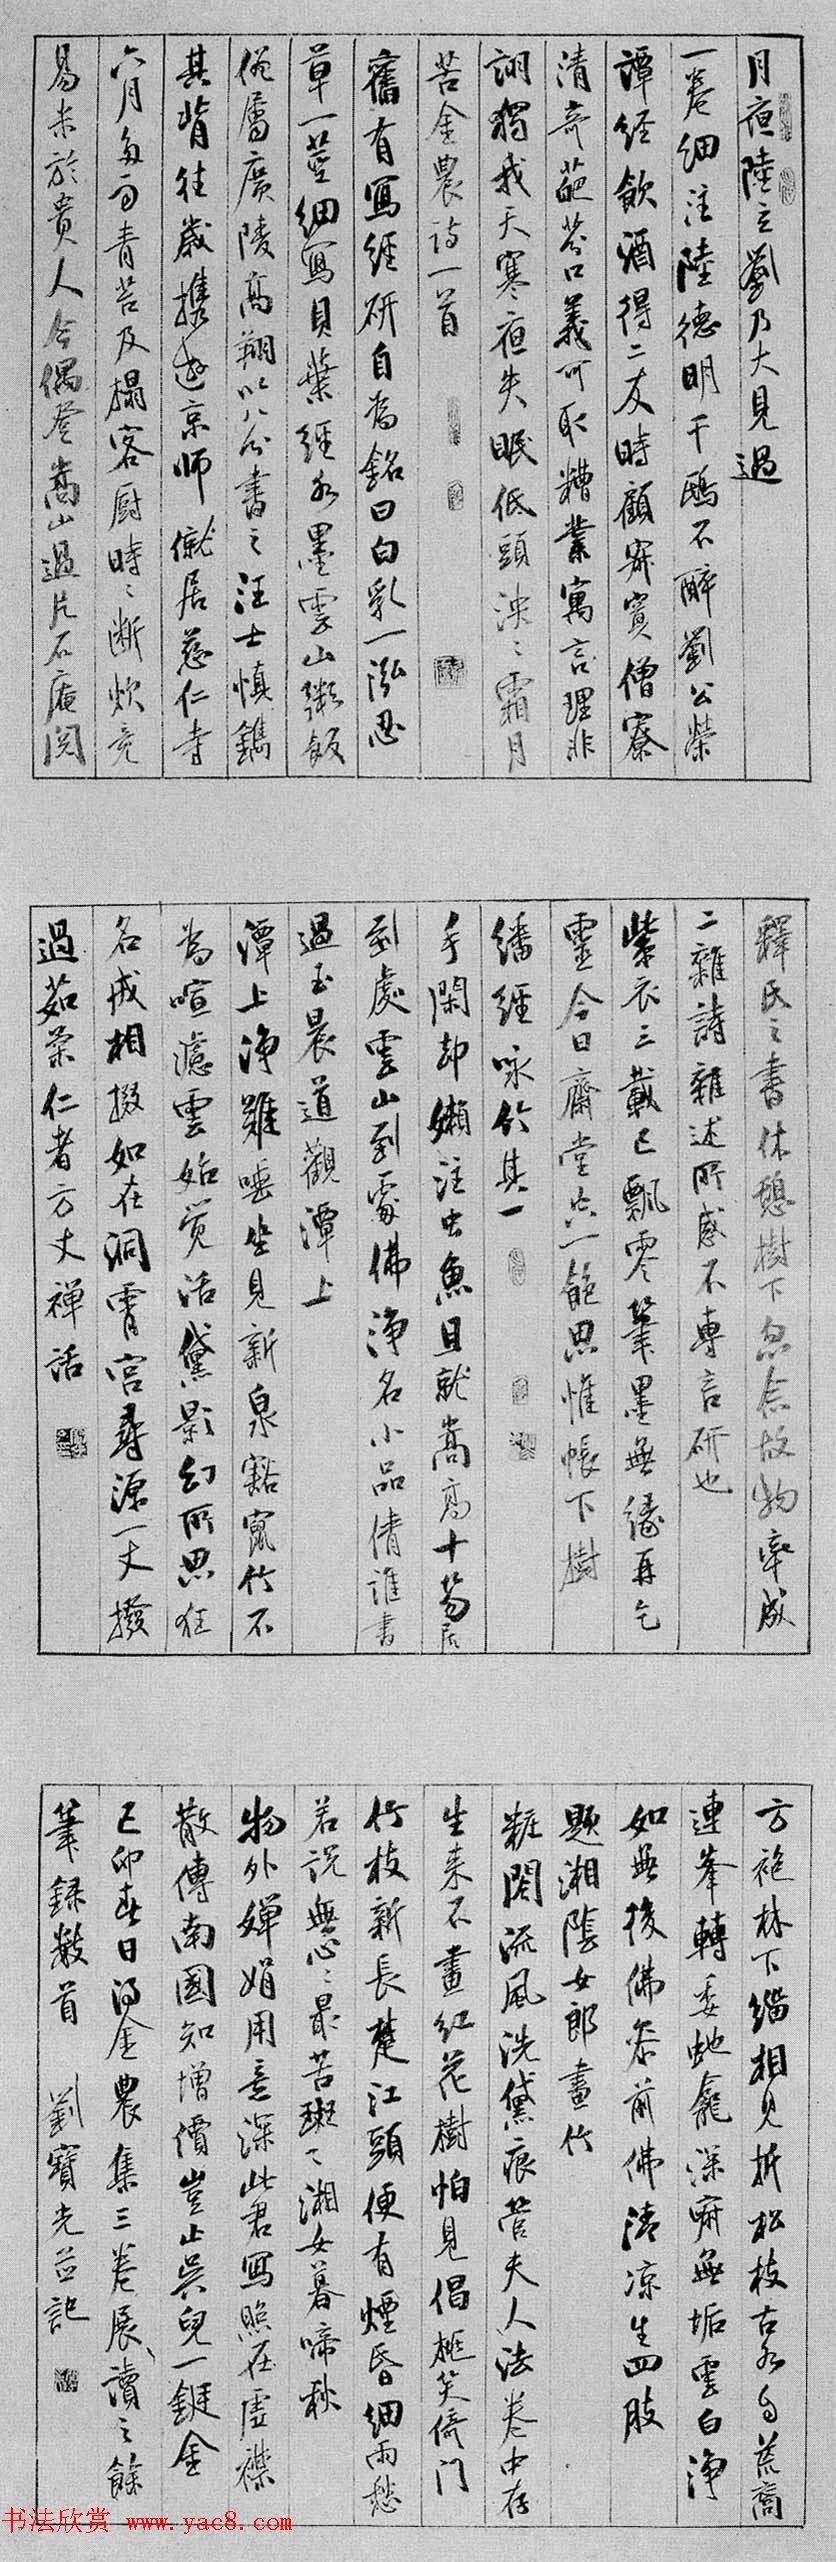 月夜陸立劉乃大見過
一卷細注陸德明千鴎不醉劉公榮
譚經飲酒得二友時顧寂寞僧寮
清奇葩芬口義可取糟業寓言理非
詡獨我天寒夜失眠低頭泱〻霜月
苦金農詩一首
舊有寫經研自為銘曰白乳一泓忍
草一莖細寫貝葉經水墨雲山粥飯
僧屬廣陵高翔以八分書之汪士慎鐫
其背往歲携遊京師僦居慈仁寺
六月多雨青苔及榻客厨時〻斷炊竟
易米於貴人今偶登嵩山過片石庵閱
釋氏之書休憩樹下忽念故物率成
二雜詩雜述所感不專言研也
紫衣三載已飄零筆墨無緣再乞
靈今日齋堂共一飽思惟帳下樹
繙經咏於其一
手閑却嬾注虫魚且就嵩高十笏居
到處雲山到處佛淨名小品倩誰書
過玉晨道觀潭上
潭上淨難唾坐見新泉豁竄竹不
為喧濾雲始覺活黛影幻所思狂
名戒相掇如在洞霄宮尋源一丈撥
過茹荼仁者方丈禪話
方袍林下緇相見折松枝古水自荒裔
連峯轉委蛇龕深窟無垢雲白淨
如無後佛吞前佛清凉生四肢
題湘陰女郎畫竹
粧閣流風洗黛痕菅夫人法卷中存
生来不畫紅花樹怕見倡桃笑倚门
竹枝新長楚江頭便有煙昏細雨愁
若說無心〻最苦斑〻湘女暮啼秋
物外嬋娟用意深此君寫照在虛襟
散傳南國知增價豈止吳兒一鋌金
己卯春日得金農集三卷展讀之餘
筆録數首 劉寶光并記
书法欣赏 www.yac8.com